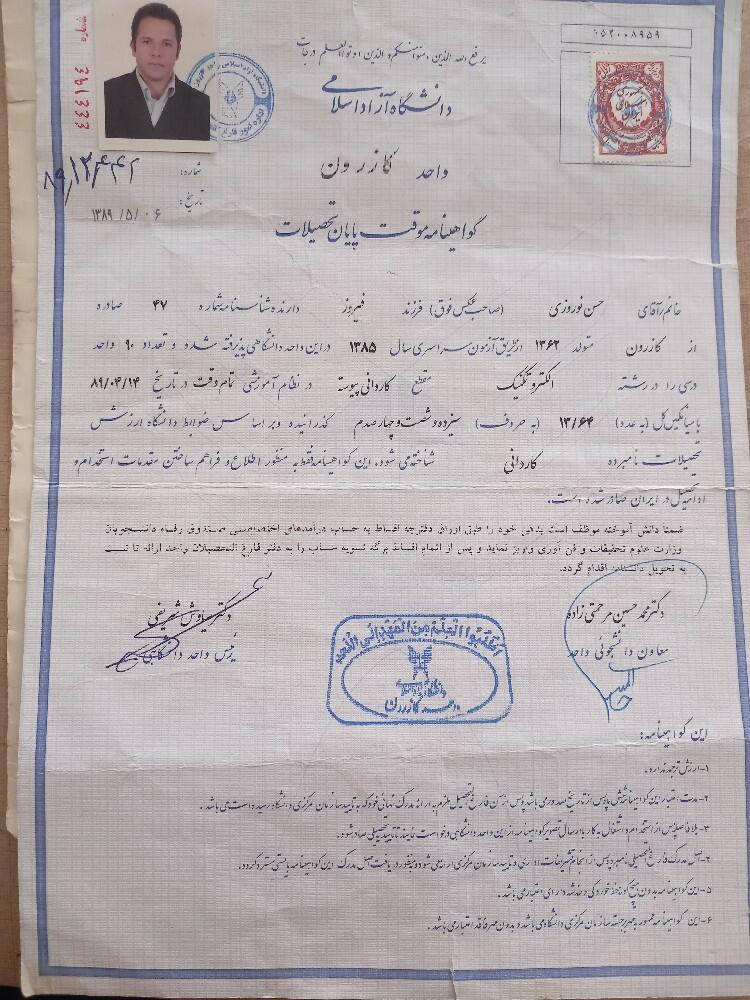 ۰۵۲۰۰۸۹۵۹
یرفع الله الذین امنوا منکم والذین اوتوا العلم درجات
دانشگاه آزاد اسلامی
واحد کازرون
شماره: ۸۹/۱۳۴۴۲
تاریخ: ۱۳۸۹/۵/۰۶
گواهینامه موقت پایان تحصیلات
جمهوری اسلامی ایران
خانم/آقای حسن نوروزی (صاحب عکس فوق) فرزند فیروز دارنده شناسنامه شماره ۴۷ صادره
از کازرون متولد ۱۳۶۲ ازطریق آزمون سراسری سال ۱۳۸۵ در این واحد دانشگاهی پذیرفته شده و تعداد ۹۰ واحد
درسی را در رشته الکتروتکنیک مقطع کاردانی پیوسته در نظام آموزشی تمام وقت در تاریخ ۸۹/۰۴/۱۴
با میانگین کل (به عدد) ۱۳/۶۴ (به حروف) سیزده و شصت و چهار صدم گذرانیده و بر اساس ضوابط دانشگاه ارزش
تحصیلات نامبرده کاردانی شناخته می شود. این گواهینامه فقط به منظور اطلاع و فراهم ساختن مقدمات استخدام و
ادامه تحصیل در ایران صادر شده است.
ضمنا دانش آموخته موظف است بدهی خود را طبق اوراق دفترچه اقساط به حساب درآمدهای اختصاصی صندوق رفاه دانشجویان
وزارت علوم تحقیقات و فن آوری واریز نماید و پس از اتمام اقساط برگه تسویه حساب را به دفتر فارغ التحصیلان واحد ارائه تا نسبت
به تحویل دانشنامه اقدام گردد.
دکتر محمد حسین مرحمتی زاده
معاون دانشجوئی واحد
دکتر سیاوش شریفی
رئیس واحد دانشگاهی
اطلبوا العلم من المهد الی اللحد
دانشگاه آزاد اسلامی
واحد کازرون
این گواهینامه:
۱-ارزش ترجمه ندارد.
۲-مدت اعتبار این گواهینامه شش ماه پس از تاریخ صدور می باشد و پس از آن فارغ التحصیل ملزم به ارائه مدرک نهائی خود که به تایید سازمان مرکزی دانشگاه رسیده است می باشد.
۳-بلافاصله پس از استخدام و اشتغال به کار با ارسال تصویر گواهینامه از این واحد دانشگاهی درخواست نمایند تا تاییدیه تحصیلی صادر شود.
۴-اصل مدرک فارغ التحصیلی نامبرده پس از انجام تشریفات اداری و تایید سازمان مرکزی ارائه می شود و به منظور دریافت اصل مدرک این گواهینامه بایستی مسترد گردد.
۵-این گواهینامه بدون هیچگونه خط خوردگی و خدشه دارای اعتبار می باشد.
۶-این گواهینامه ممهور به مهر برجسته سازمان مرکزی دانشگاه می باشد و بدون مهر فاقد اعتبار می باشد.